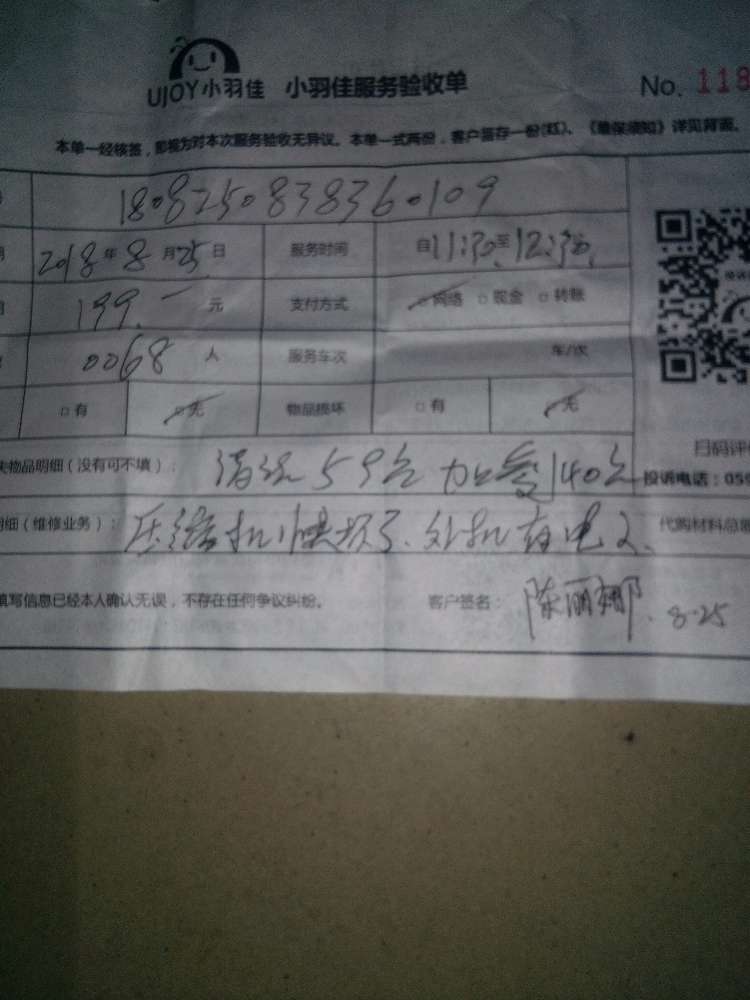 UJOY小羽佳 小羽佳服务验收单 No. 118
本单一经核签，即视为对本次服务验收无异议。本单一式两份，客户留存一份(红)、《维保须知》详见背面。
1808250838360109
2018年8月25日 服务时间 自11:30至12:30
199.一元 支付方式 网络 □现金 □转账
0068人 服务车次 车/次
□有 □无 物品损坏 □有 无
失物品明细（没有可不填）： 清洗59元 加雪140元
投诉电话：059
明细（维修业务）： 压缩机快坏了、外机有电了、 代购材料总
填写信息已经本人确认无误，不存在任何争议纠纷。 客户签名： 陈丽娜. 8.25
扫码评